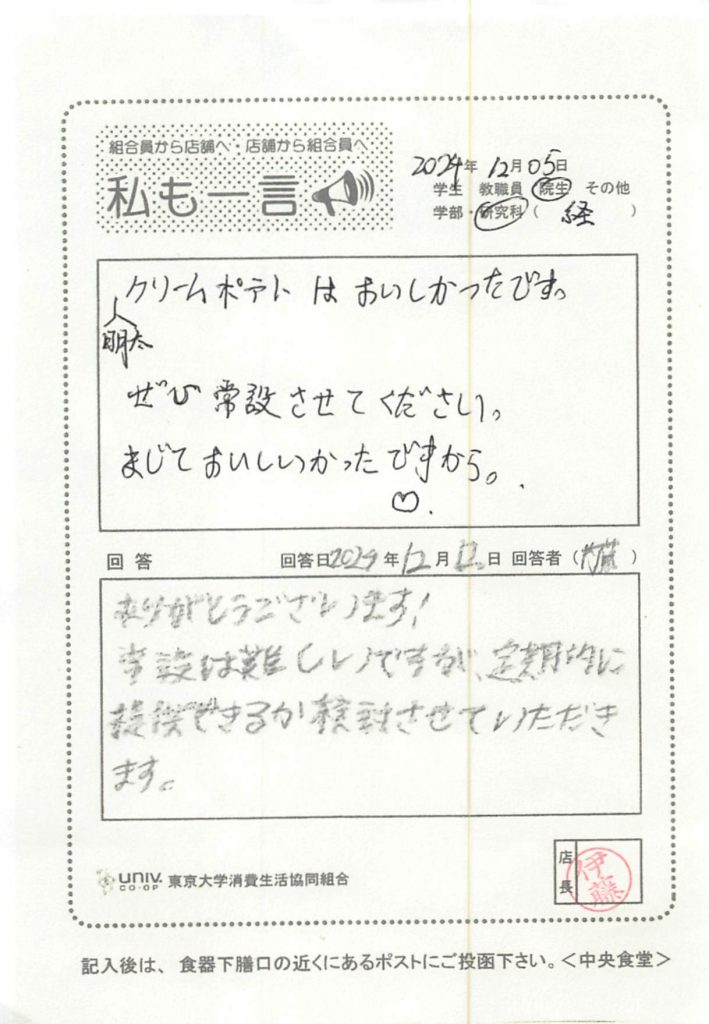 組合員から店舗へ・店舗から組合員へ
私も一言
2024年 12月05日
学生 教職員 院生 その他
学部・研究科( 経 )
明太クリームポテトはおいしかったです。
ぜひ常設させてください。
まじでおいしいかったですから。
♡.
回答 回答日2024年12月12日 回答者( )
ありがとうございます!
常設は難しいですが、定期的に
提供できるか検討させていただき
ます。
UNIV. CO-OP 東京大学消費生活協同組合
店長 伊藤
記入後は、食器下膳口の近くにあるポストにご投函下さい。<中央食堂>